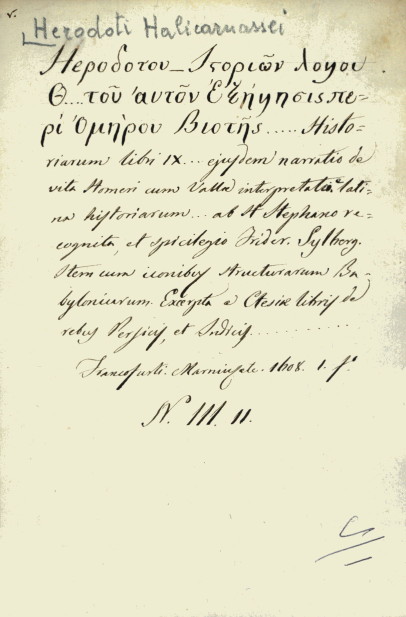 v.
Herodoti Halicarnassei
Ηεροδοτου _ Ιϛοριῶν λογοι
Θ....τοῦ ἀυτὸν Ἐξήγησις πε-
ρί Ὁμήρου Βιοτῆς ..... Histo-
riarum libri IX... ejusdem narratio de
vita Homeri cum Valla interpretatie lati-
na historiarum... ab H Stephano re-
cognita, et spicilegio Frider. Sylborg.
Item cum iconibus structurarum Ba-
byloniarum. Excerpta e Ctesiæ libris de
rebus Persicis, et Indicis..........
Francofurti. Marniusde. 1608. 1. fº
Nº III. 11.